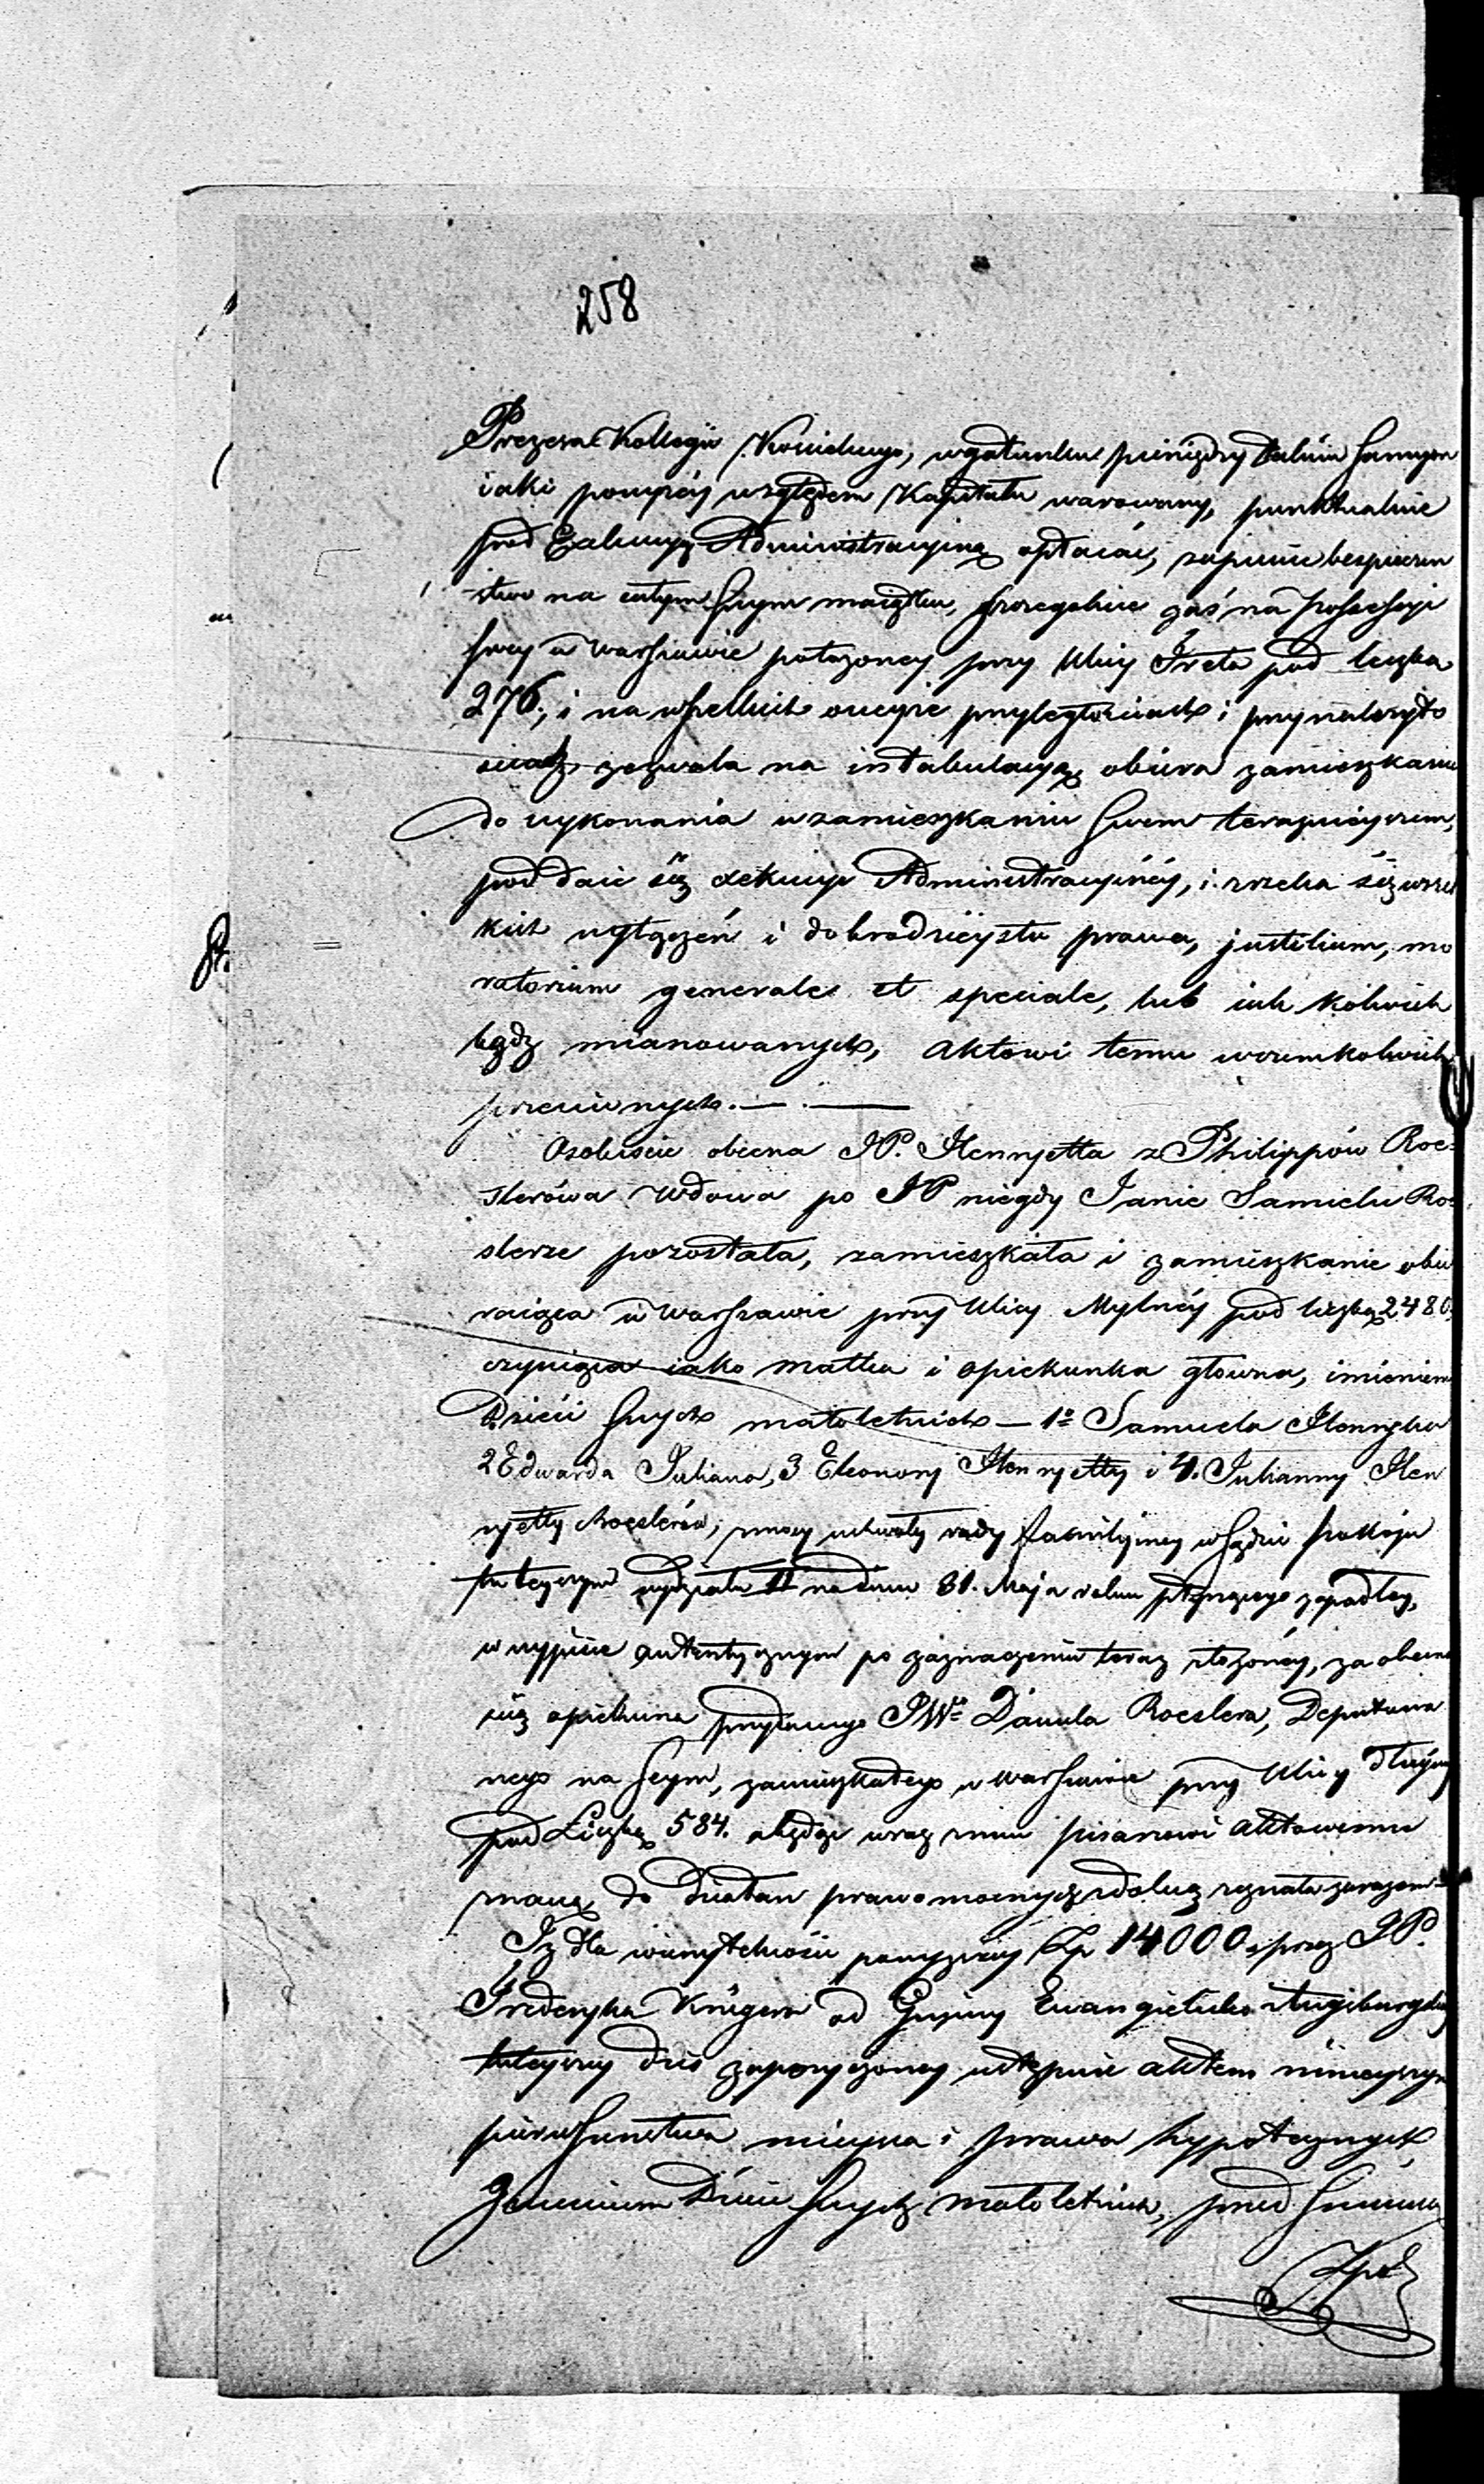 258
Prezesa Kollegii Kościelnego, w gatunku pieniędzy takim samym
iaki powyżey względem Kapitału warowany, punktualnie
pod Exekucyą Administracyiną opłacać, zapewnie bespieczen
stwo na całym swym maiątku, szczegolnie zaś na possessyi
swey w Warszawie położoney przy Ulicy Freta pod liczbą
276; i na wszelkich oneyże przyległościach i przynależyto
ściach, zezwala na intabulacyą, obiera zamieszkanie
do wykonania w zamieszkaniu swem teraznieyszem,
poddaie się exekucyi Administracyinéy, i zrzeka się wszel
kich wyłączeń i dobrodzieystw prawa, justitium, mo
ratorium generale et speciale, lub iak kolwiek
bądź mianowanych, aktowi temu wczemkolwiek
przeciwnych. — . —
Osobiście obecna JP. Henryetta z Philippów Roe=
slerówa wdowa po JP niegdy Janie Samielu Roe
slerze pozostała, zamieszkała i zamieszkanie obie
raiąca w Warszawie przy Ulicy Mylnéy pod liczbą 2486
czyniąca iako matka i opiekunka głowna, imieniem
Dzieci swych małoletnich — 1º Samuela Henryka
2 Edwarda Juliana, 3 Eleonory Henryetty i 4. Julianny Hen
ryetty Roeslerów, z mocy uchwały rady familiyney w Sądzie Pokoju
tuteyszym wydziału II na dniu 31. Maja roku płynącego zapadłey,
w wypisie autentycznym po zaznaczeniu teraz złożonéy, za obecno
ścią opiekuna przydanego JWº Daniela Roeslera, Deputowa
nego na Seym, zamieszkałego w Warszawie przy Ulicy Długiey
pod Liczbą 584. a będąc wraz z nim pisarzowi aktowemu
znaną, do działań prawomocnych zdolną zeznała zarazem
Iż dla wierzytelności powyższey Zp 14000. przez JP.
Fryderyka Krügera od Gminy Ewangielicko Augsburgskiey
tuteyszey dziś zapożyczoney ustępuie aktem ninieyszym
pierwszenstwa mieysca i prawa hypotecznych
Imieniem Dzieci swych małoletnich, przed summą
Zp.